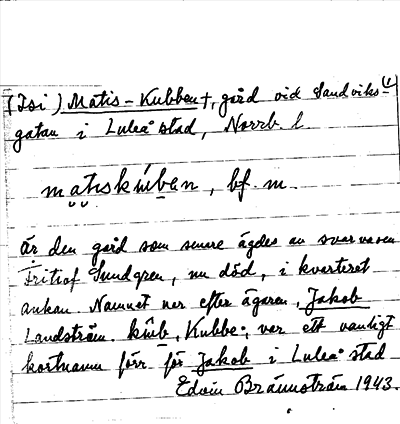 (Isi) Matis-Kubben†, gård vid Sandviks-
gatan i Luleå stad, Norrb. l.
matiskúben, bf. m.
är den gård som senare ägdes av svarvaren
Fritiof Sundgren, nu död, i kvarteret
ankan. Namnet var efter ägaren, Jakob
Landström. kûb, Kubbe, var ett vanligt
kortnamn förr för Jakob i Luleå stad
Edvin Brännström 1943.